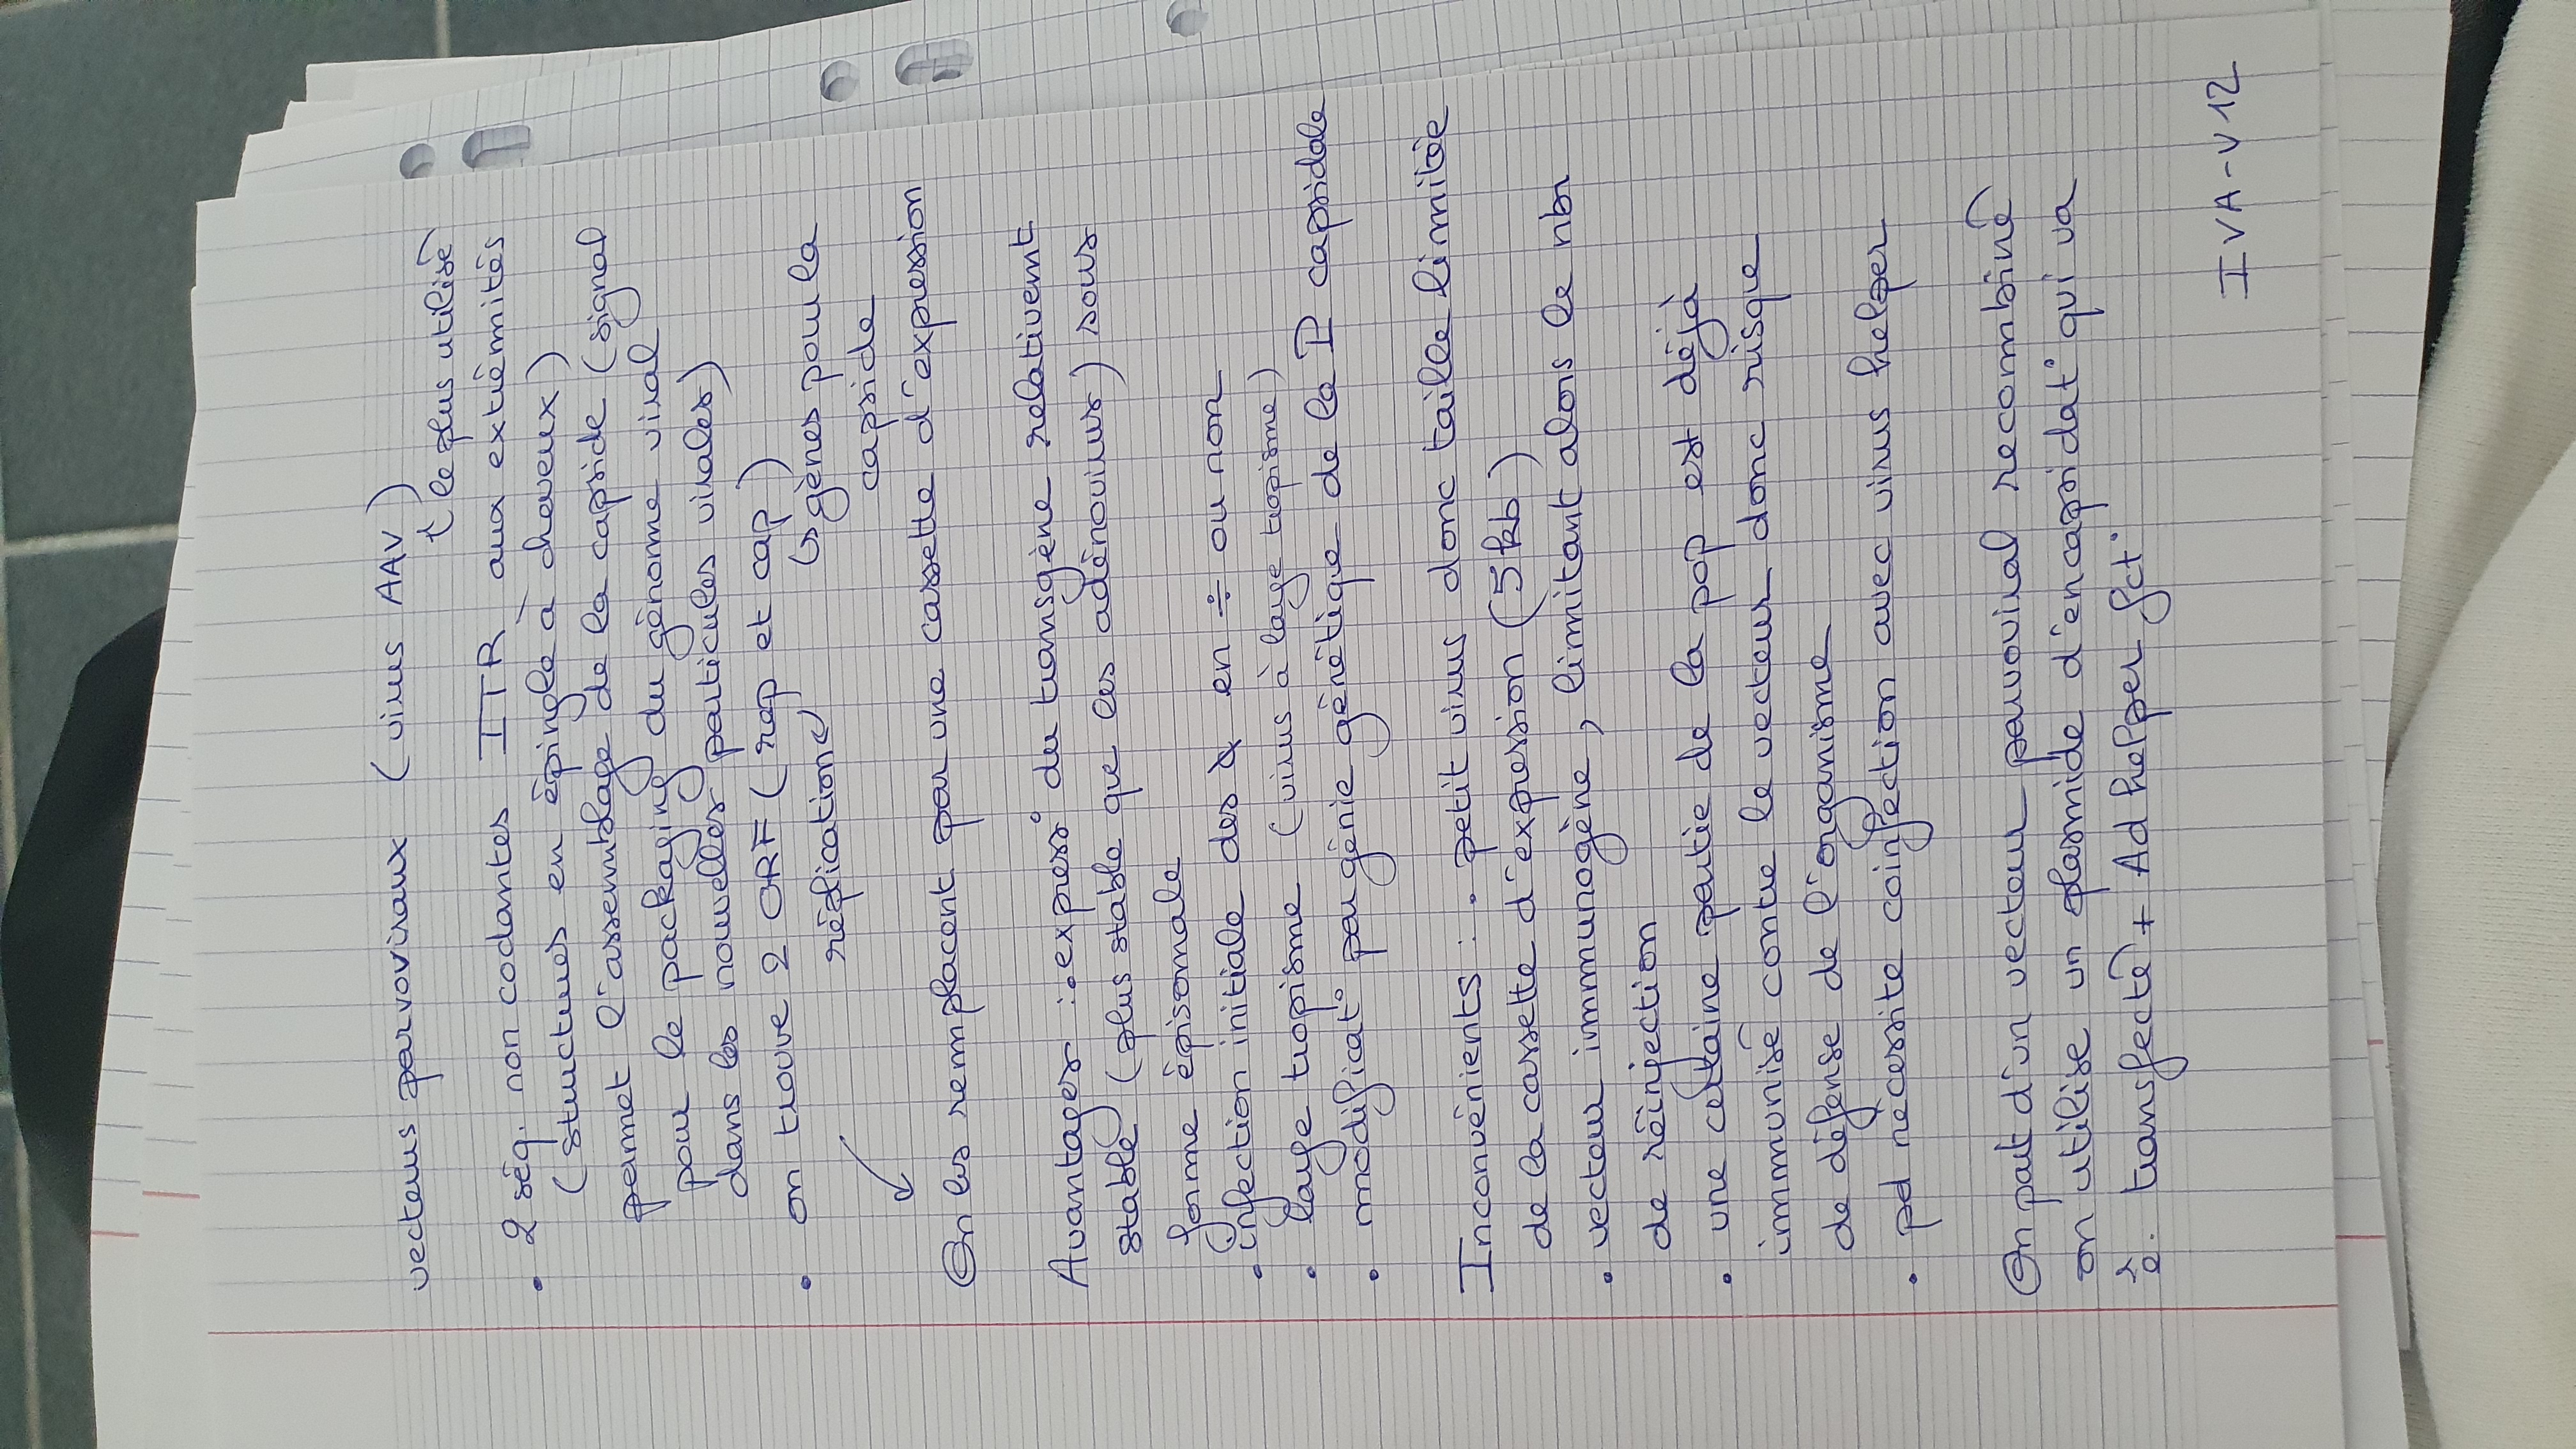 vecteurs parvoviraux (virus AAV)
↑ le plus utilisé
• 2 séq. non codantes ITR aux extrêmités
(structures en épingle à cheveux)
permet l'assemblage de la capside (signal
pour le packaging du génome viral
dans les nouvelles particules virales)
• on trouve 2 ORF (rep et cap)
réplication ↵ ↳ gènes pour la
capside
↙
On les remplacent par une cassette d'expression
Avantages : • express° du transgène relativemt
stable (plus stable que les adénovirus) sous
forme épisomale
• infection initiale des ¢ en ÷ ou non
• large tropisme (virus à large tropisme)
• modificat° par génie génétique de la P capsidale
Inconvénients : • petit virus donc taille limitée
de la cassette d'expression (5 kb)
• vecteur immunogène, limitant alors le nbr
de réinjection
• une certaine partie de la pop est déjà
immunisé contre le vecteur donc risque
de défense de l'organisme
• pd nécessite coinfection avec virus helper
On part d'un vecteur parvoviral recombiné
on utilise un plasmide d'encapsidat° qui va
ê. transfecté + Ad helper fct°
IVA-V12